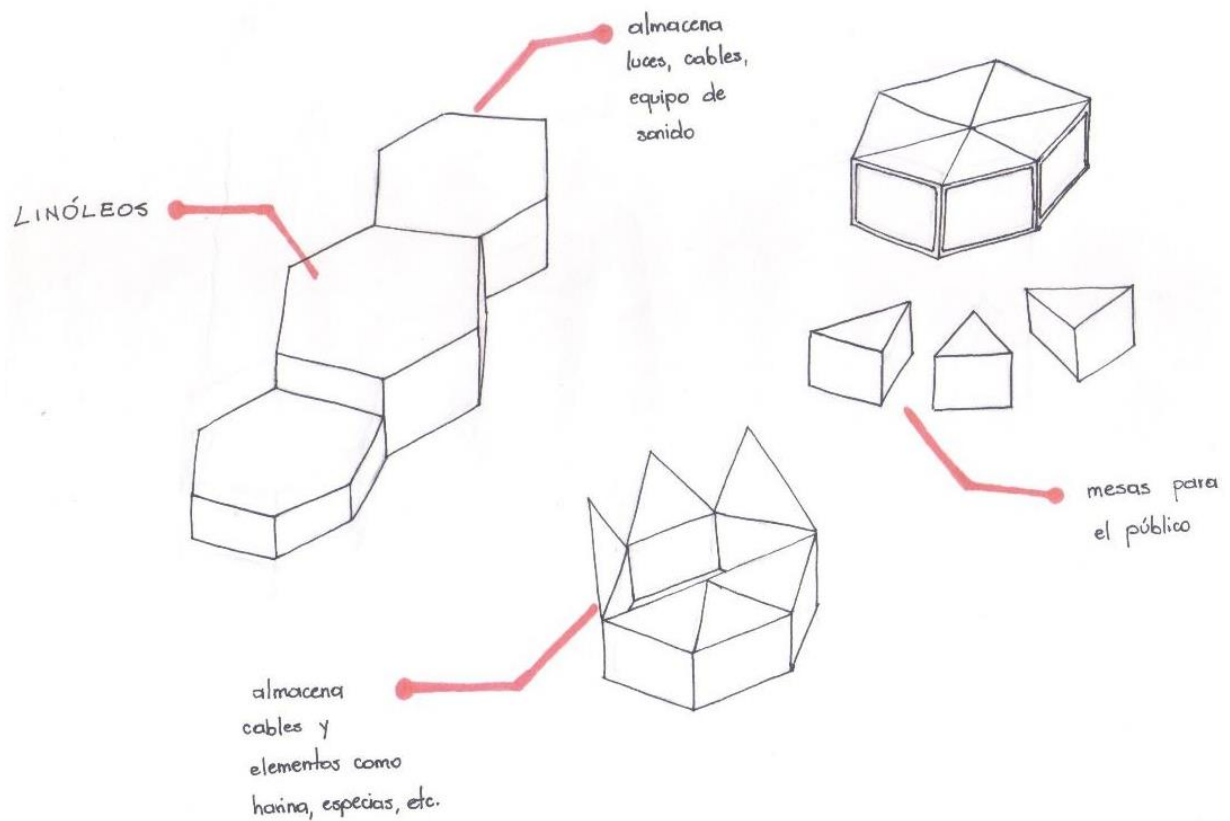 almacena
luces, cables,
equipo de
sonido
LINÓLEOS
mesas para
el público
almacena
cables y
elementos como
harina, especias, etc.